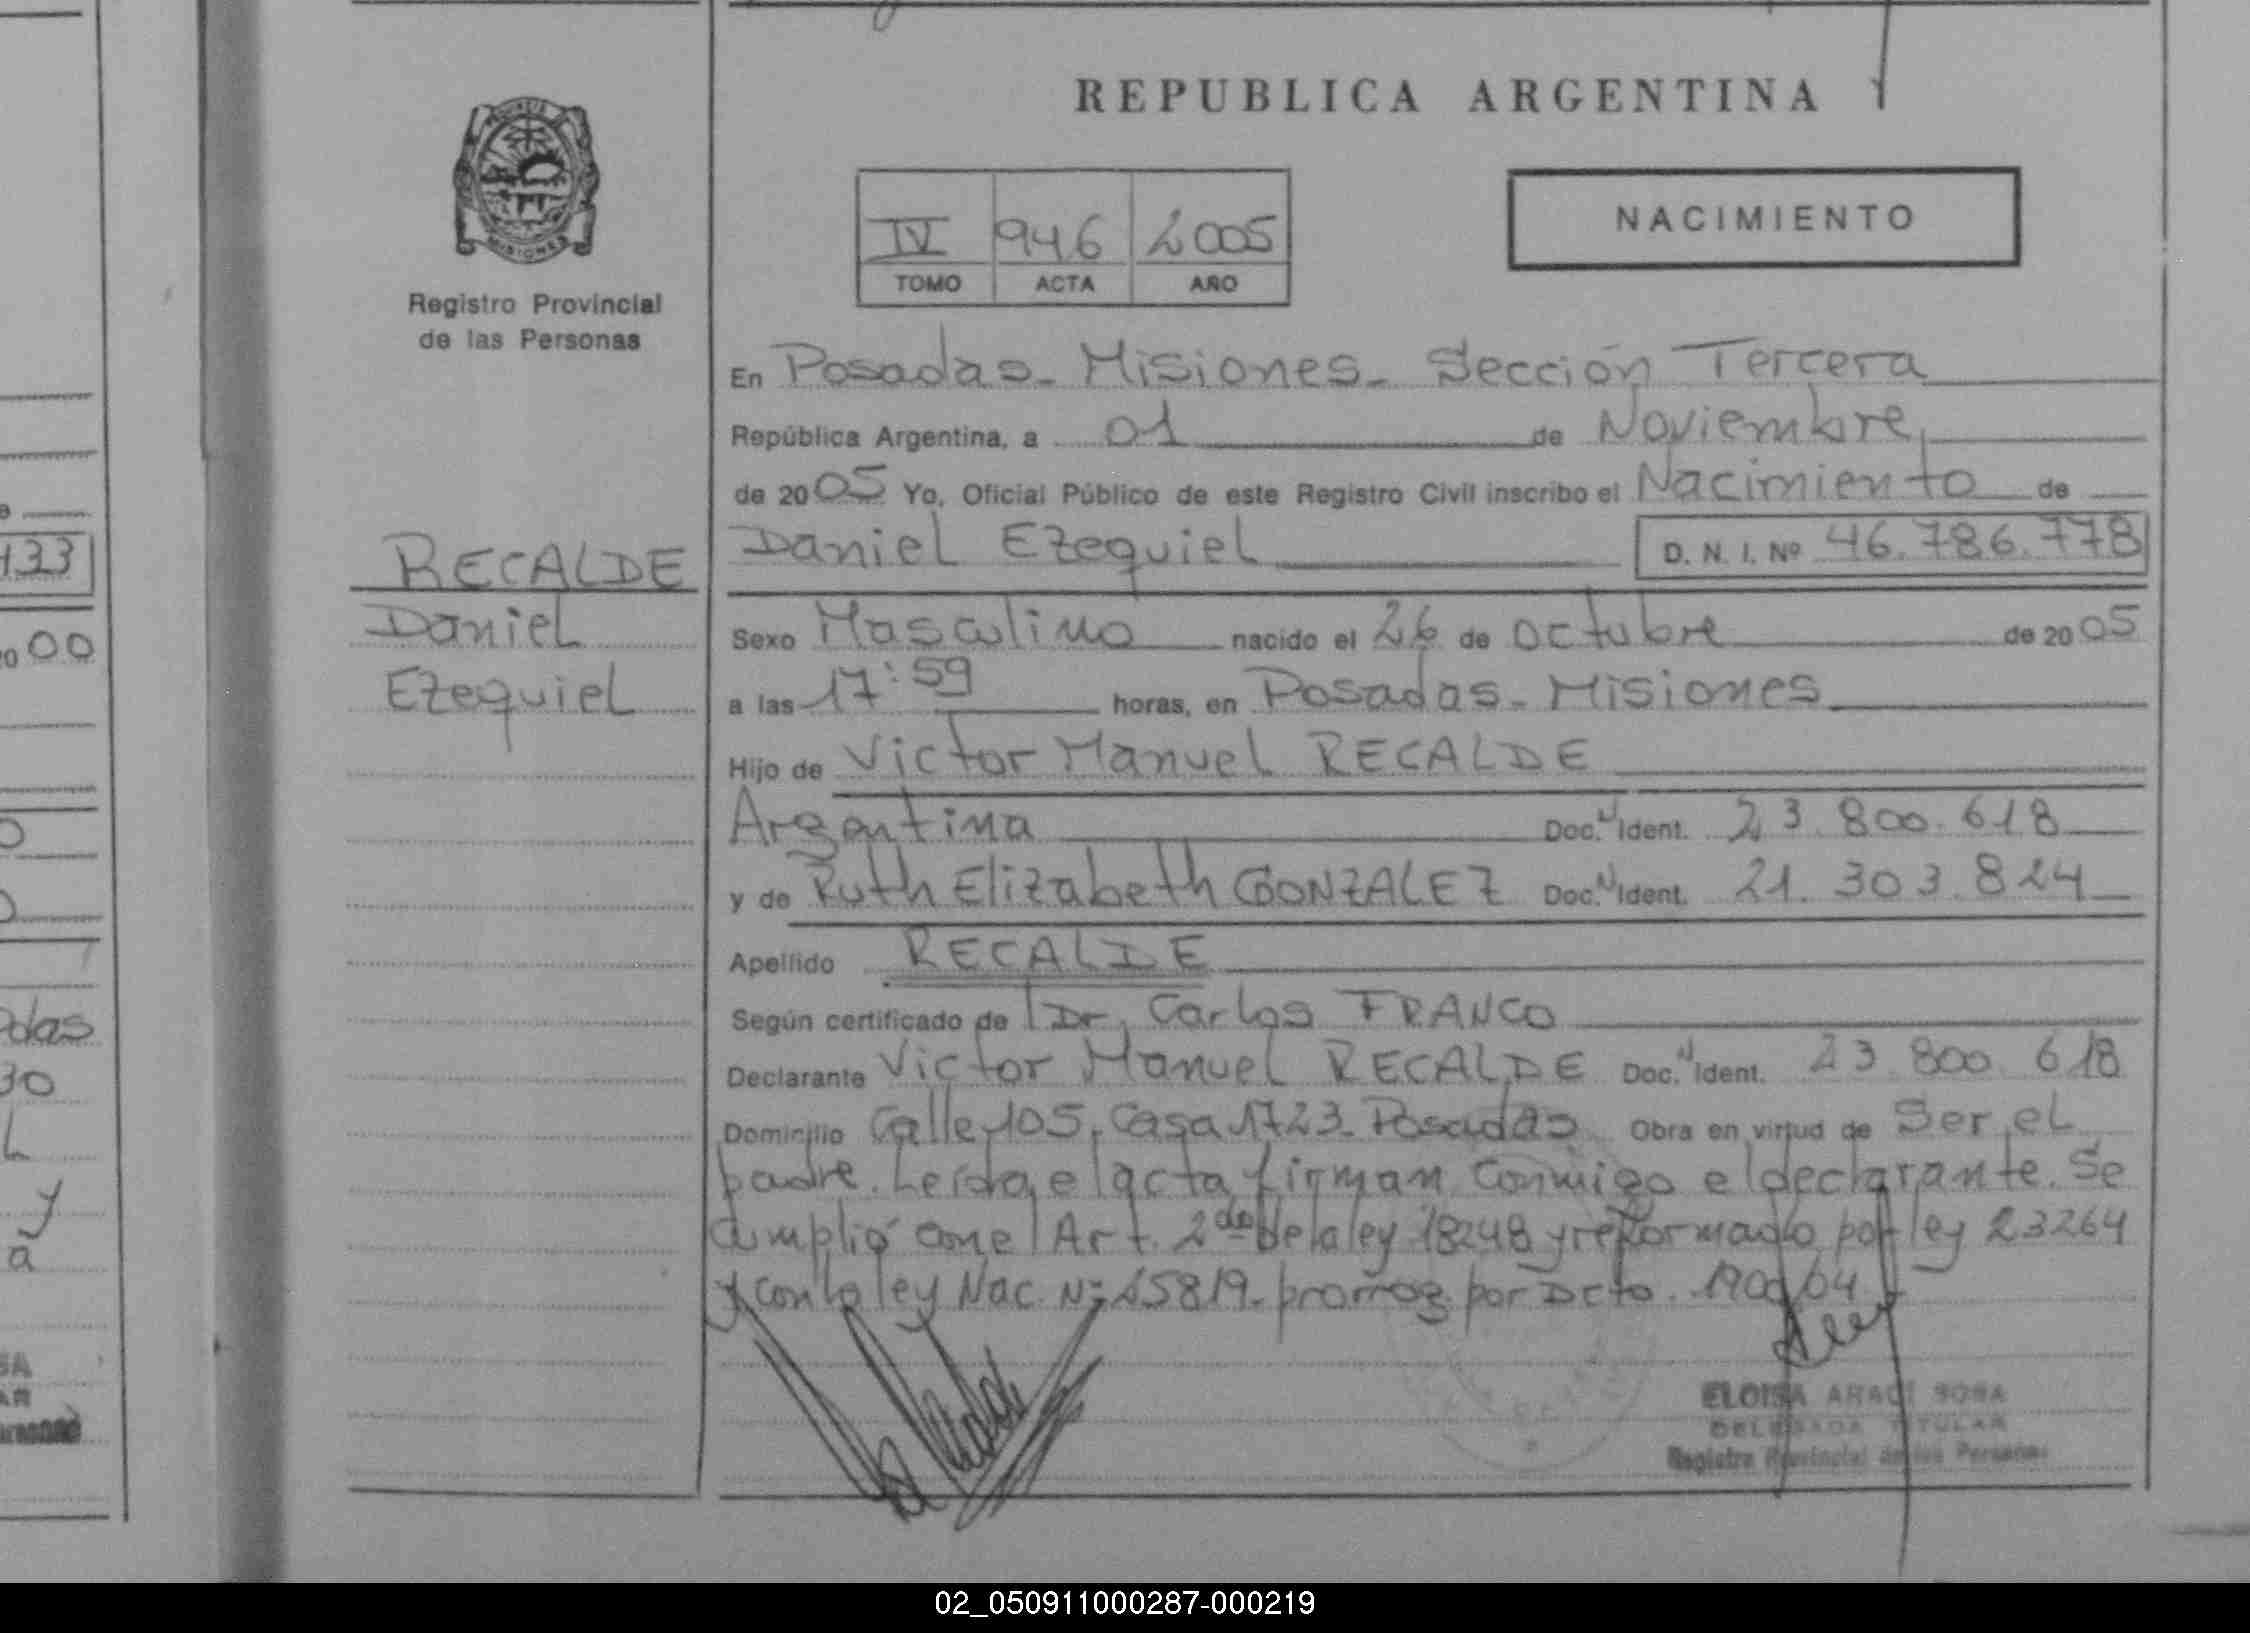 REPUBLICA ARGENTINA
MISIONES
Registro Provincial
de las Personas
IV 946 2005
TOMO ACTA AÑO
NACIMIENTO
RECALDE
Daniel
Ezequiel
En Posadas - Misiones - Sección Tercera
República Argentina, a 01 de Noviembre
de 2005 Yo, Oficial Público de este Registro Civil inscribo el Nacimiento de
Daniel Ezequiel D. N. I. Nº 46.786.778
Sexo Masculino nacido el 26 de octubre de 2005
a las 17:59 horas, en Posadas - Misiones
Hijo de Victor Manuel RECALDE
Argentina Doc. N Ident. 23.800.618
y de Ruth Elizabeth GONZALEZ Doc. N Ident. 21.303.824
Apellido RECALDE
Según certificado de Dr. Carlos FRANCO
Declarante Victor Manuel RECALDE Doc. N Ident. 23.800.618
Domicilio Calle 105, Casa 1723 - Posadas Obra en virtud de Ser el
padre. Leída el acta firman conmigo el declarante. Se
cumplió con el Art. 2do de la ley 18248 y reformado por ley 23264
y con la ley Nac. Nº 25819. por Dcto.
ELOISA ARACI SOSA
DELEGADA TITULAR
Registro Provincial de las Personas
133
00
30
L
y
a
02_050911000287-000219